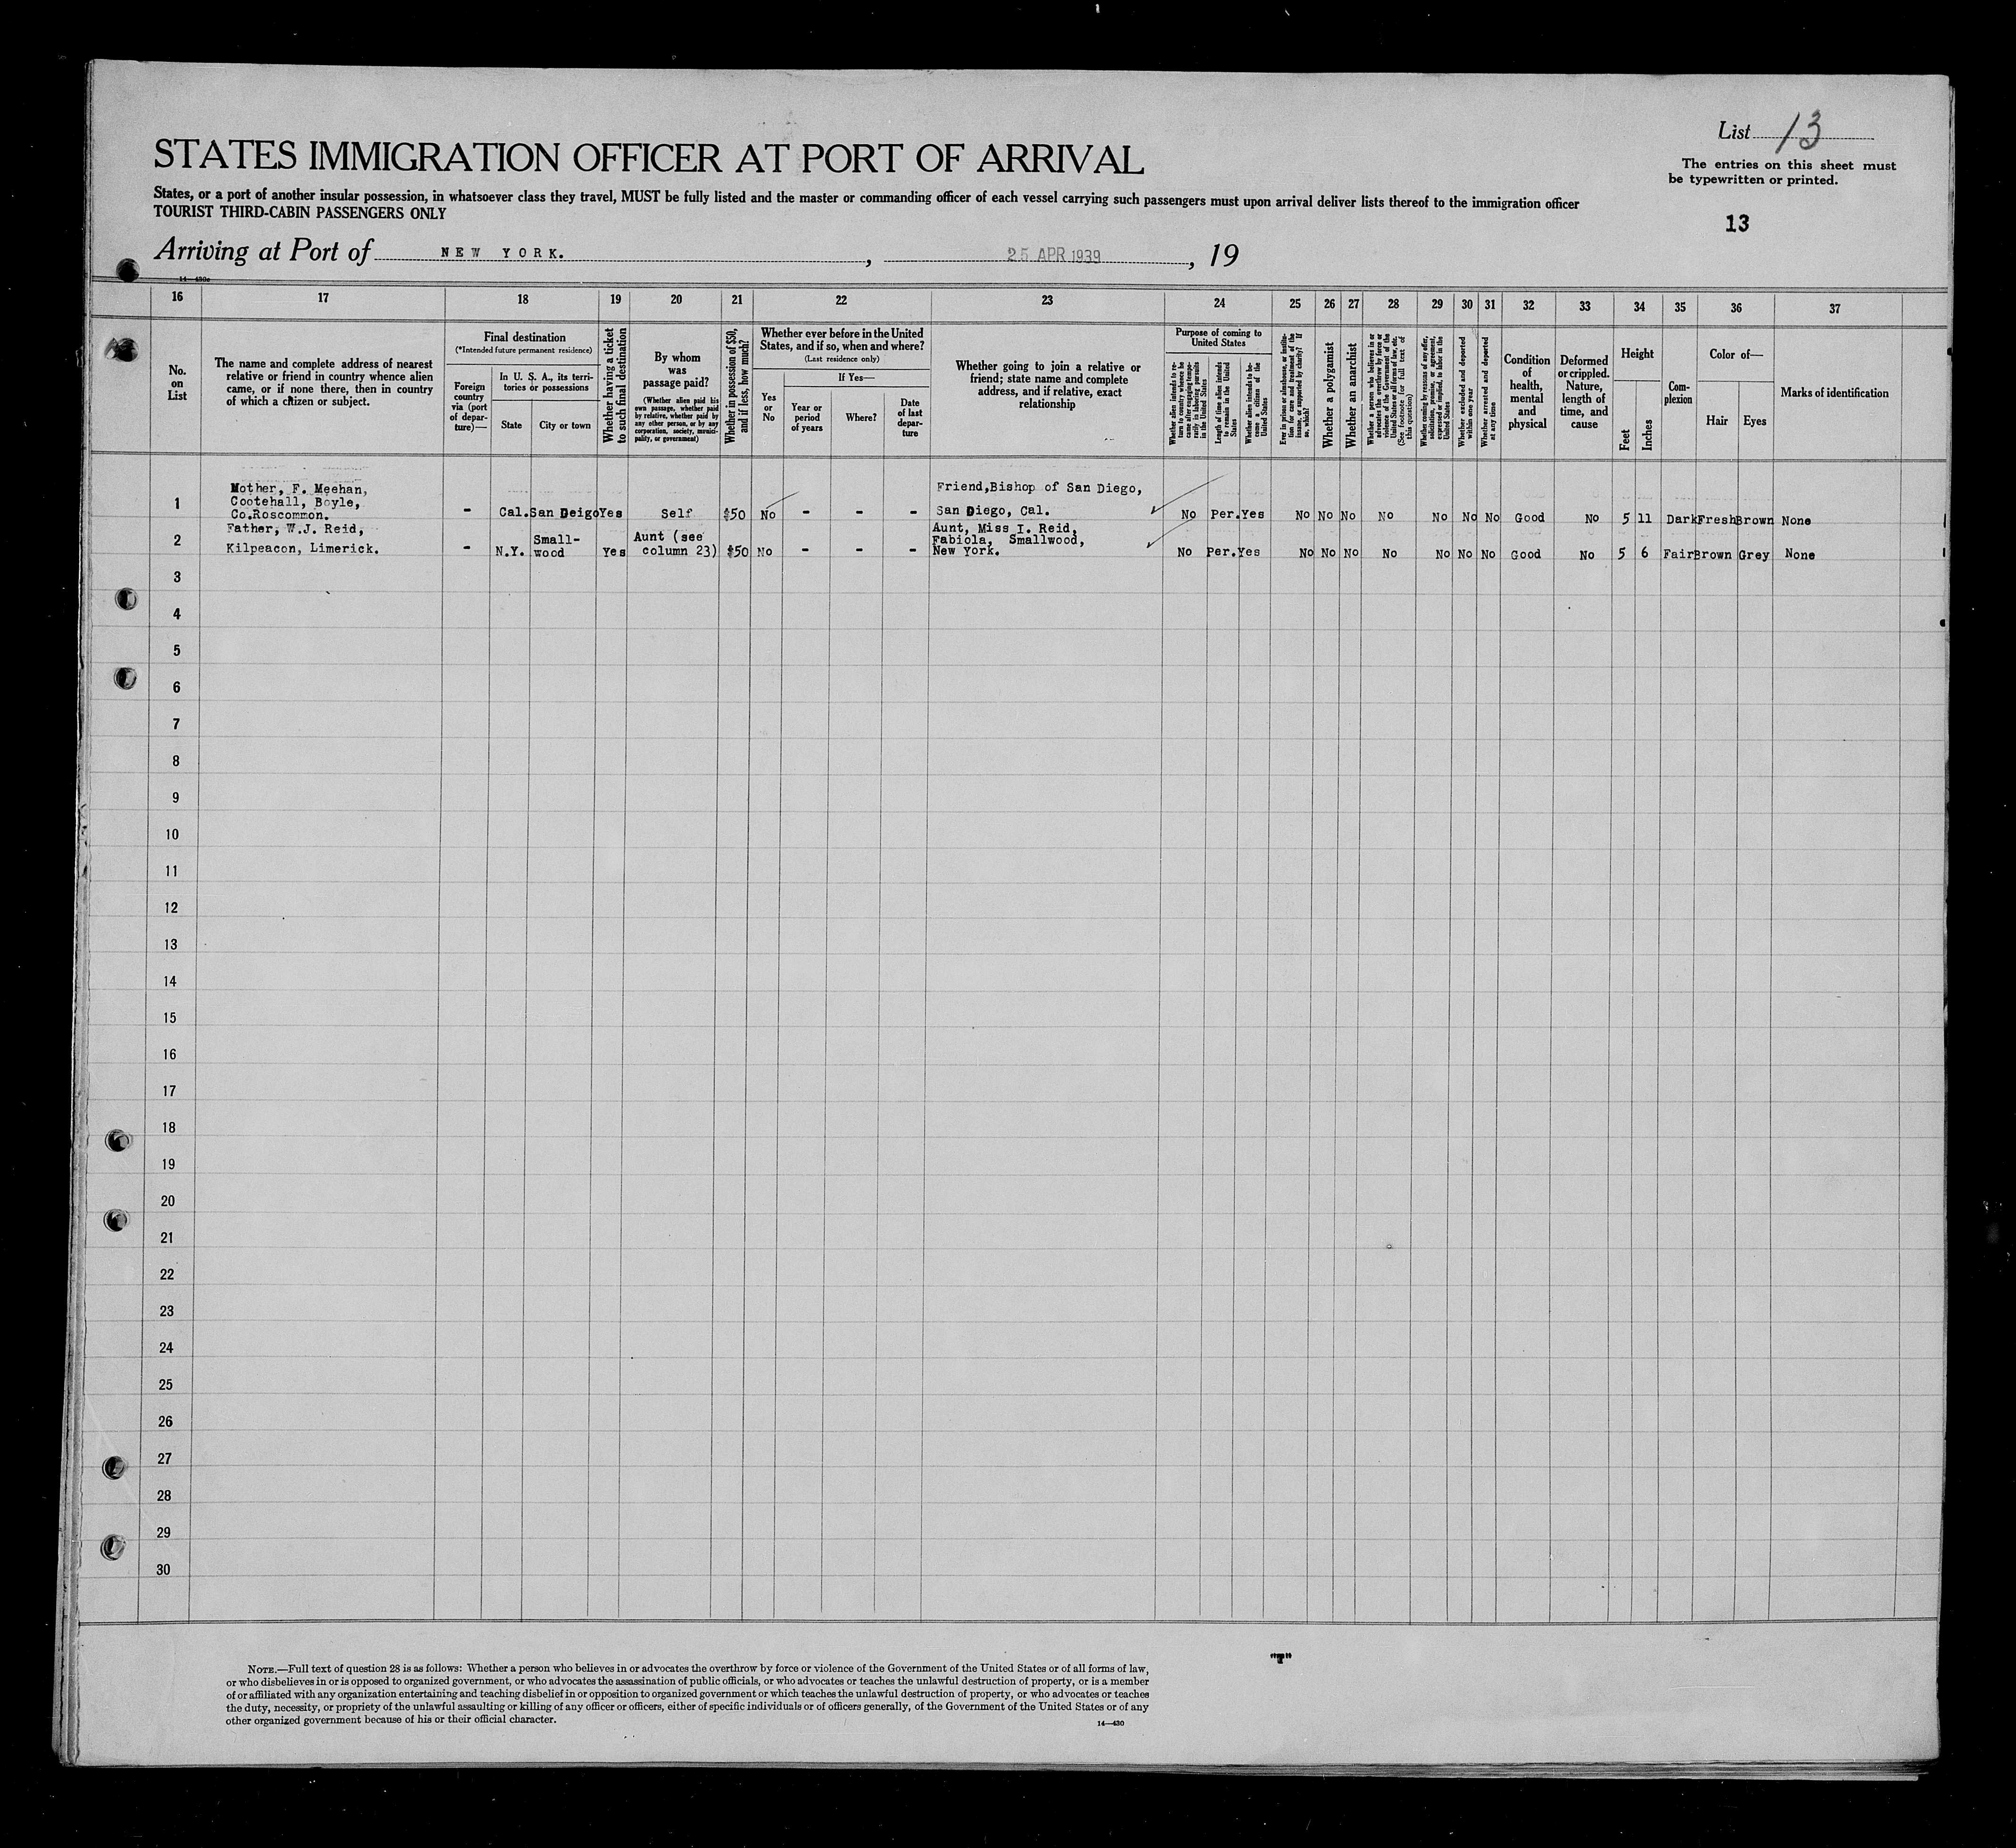 List 13
STATES IMMIGRATION OFFICER AT PORT OF ARRIVAL
The entries on this sheet must
be typewritten or printed.
States, or a port of another insular possession, in whatsoever class they travel, MUST be fully listed and the master or commanding officer of each vessel carrying such passengers must upon arrival deliver lists thereof to the immigration officer
TOURIST THIRD-CABIN PASSENGERS ONLY
13
Arriving at Port of NEW YORK. , 25 APR 1939 , 19
14—430c
16 17 18 19 20 21 22 23 24 25 26 27 28 29 30 31 32 33 34 35 36 37
No.
on
List
The name and complete address of nearest
relative or friend in country whence alien
came, or if none there, then in country
of which a citizen or subject.
Final destination
(*Intended future permanent residence)
Foreign
country
via (port
of depar-
ture)—
In U. S. A., its terri-
tories or possessions
State
City or town
Whether having a ticket
to such final destination
By whom
was
passage paid?
(Whether alien paid his
own passage, whether paid
by relative, whether paid by
any other person, or by any
corporation, society, munici-
pality, or government)
Whether in possession of $50,
and if less, how much?
Whether ever before in the United
States, and if so, when and where?
(Last residence only)
Yes
or
No
If Yes—
Year or
period
of years
Where?
Date
of last
depar-
ture
Whether going to join a relative or
friend; state name and complete
address, and if relative, exact
relationship
Purpose of coming to
United States
Whether alien intends to re-
turn to country whence he
came after engaging tempo-
rarily in laboring pursuits
in the United States
Length of time alien intends
to remain in the United
States
Whether alien intends to be-
come a citizen of the
United States
Ever in prison or almshouse, or institu-
tion for care and treatment of the
insane, or supported by charity? If
so, which?
Whether a polygamist
Whether an anarchist
Whether a person who believes in or
advocates the overthrow by force or
violence of the Government of the
United States or all forms of law, etc.
(See footnote for full text of
this question)
Whether coming by reasons of any offer,
solicitation, promise, or agreement,
expressed or implied, to labor in the
United States
Whether excluded and deported
within one year
Whether arrested and deported
at any time
Condition
of
health,
mental
and
physical
Deformed
or crippled.
Nature,
length of
time, and
cause
Height
Feet
Inches
Com-
plexion
Color of—
Hair
Eyes
Marks of identification
1
Mother, F. Meehan,
Cootehall, Boyle,
Co.Roscommon.
- Cal. San Deigo Yes Self $50 No - - -
Friend,Bishop of San Diego,
San Diego, Cal.
No Per. Yes No No No No No No No Good No 5 11 Dark Fresh Brown None
2
Father, W.J. Reid,
Kilpeacon, Limerick.
- N.Y. Small-
wood
Yes Aunt (see
column 23) $50 No - - -
Aunt, Miss I. Reid,
Fabiola, Smallwood,
New York.
No Per. Yes No No No No No No No Good No 5 6 Fair Brown Grey None
3
4
5
6
7
8
9
10
11
12
13
14
15
16
17
18
19
20
21
22
23
24
25
26
27
28
29
30
NOTE.—Full text of question 28 is as follows: Whether a person who believes in or advocates the overthrow by force or violence of the Government of the United States or of all forms of law,
or who disbelieves in or is opposed to organized government, or who advocates the assassination of public officials, or who advocates or teaches the unlawful destruction of property, or is a member
of or affiliated with any organization entertaining and teaching disbelief in or opposition to organized government or which teaches the unlawful destruction of property, or who advocates or teaches
the duty, necessity, or propriety of the unlawful assaulting or killing of any officer or officers, either of specific individuals or of officers generally, of the Government of the United States or of any
other organized government because of his or their official character.
14—430
"T"